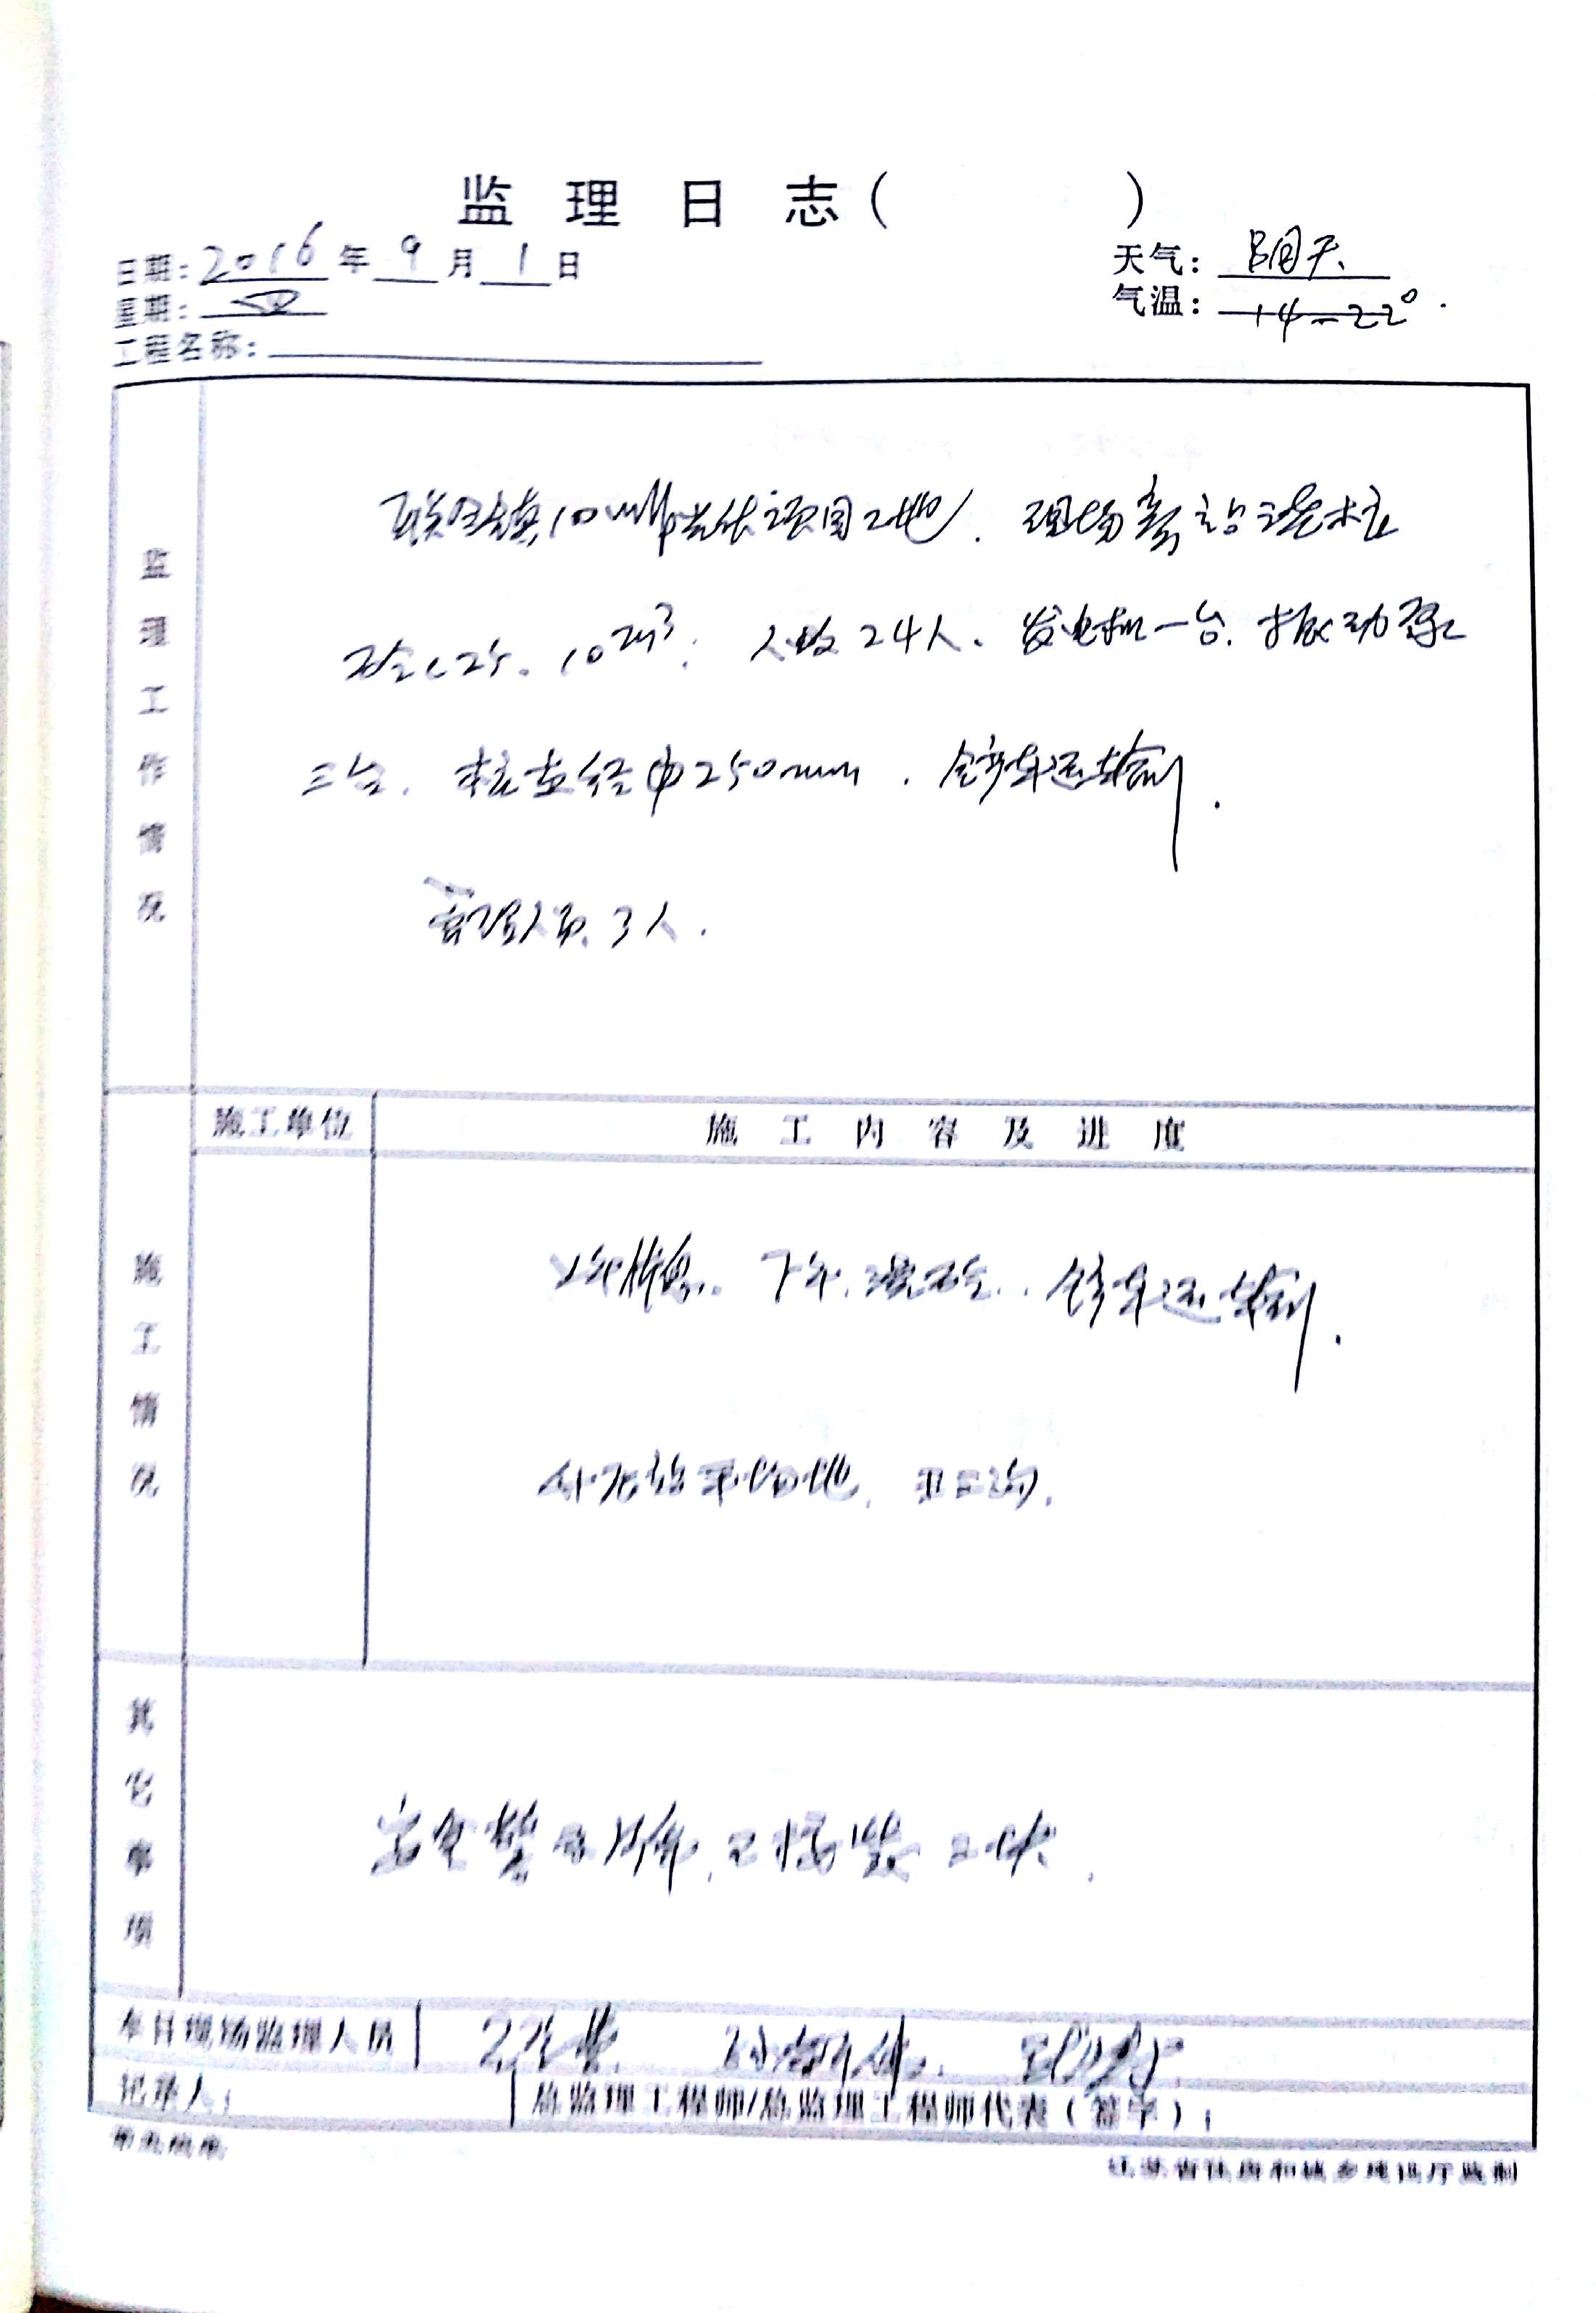 监 理 日 志 ( )
日期: 2016 年 9 月 1 日
天气: 阴天.
星期: 四
气温: 14-22°.
工程名称:
监理工作情况
10MWp光伏项目工地. 现场旁站浇桩
砼C25. 10m³. 人数24人. 发电机一台. 振动泵
三台. 桩直径φ250mm. 铲车运输.
管理人员3人.
施工单位
施 工 内 容 及 进 度
施工情况
上午休息.. 下午.浇砼.. 铲车运输.
平场地.
其它事项
安全警示牌.
本日现场监理人员
记录人:
总监理工程师/总监理工程师代表(签字):
江苏省住房和城乡建设厅监制